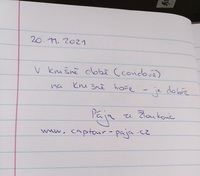 20.11.2021
V krušné době (covidové)
na Krušné hoře - je dobře
Pája ze Žlutouc
www.cnptour-paja.cz